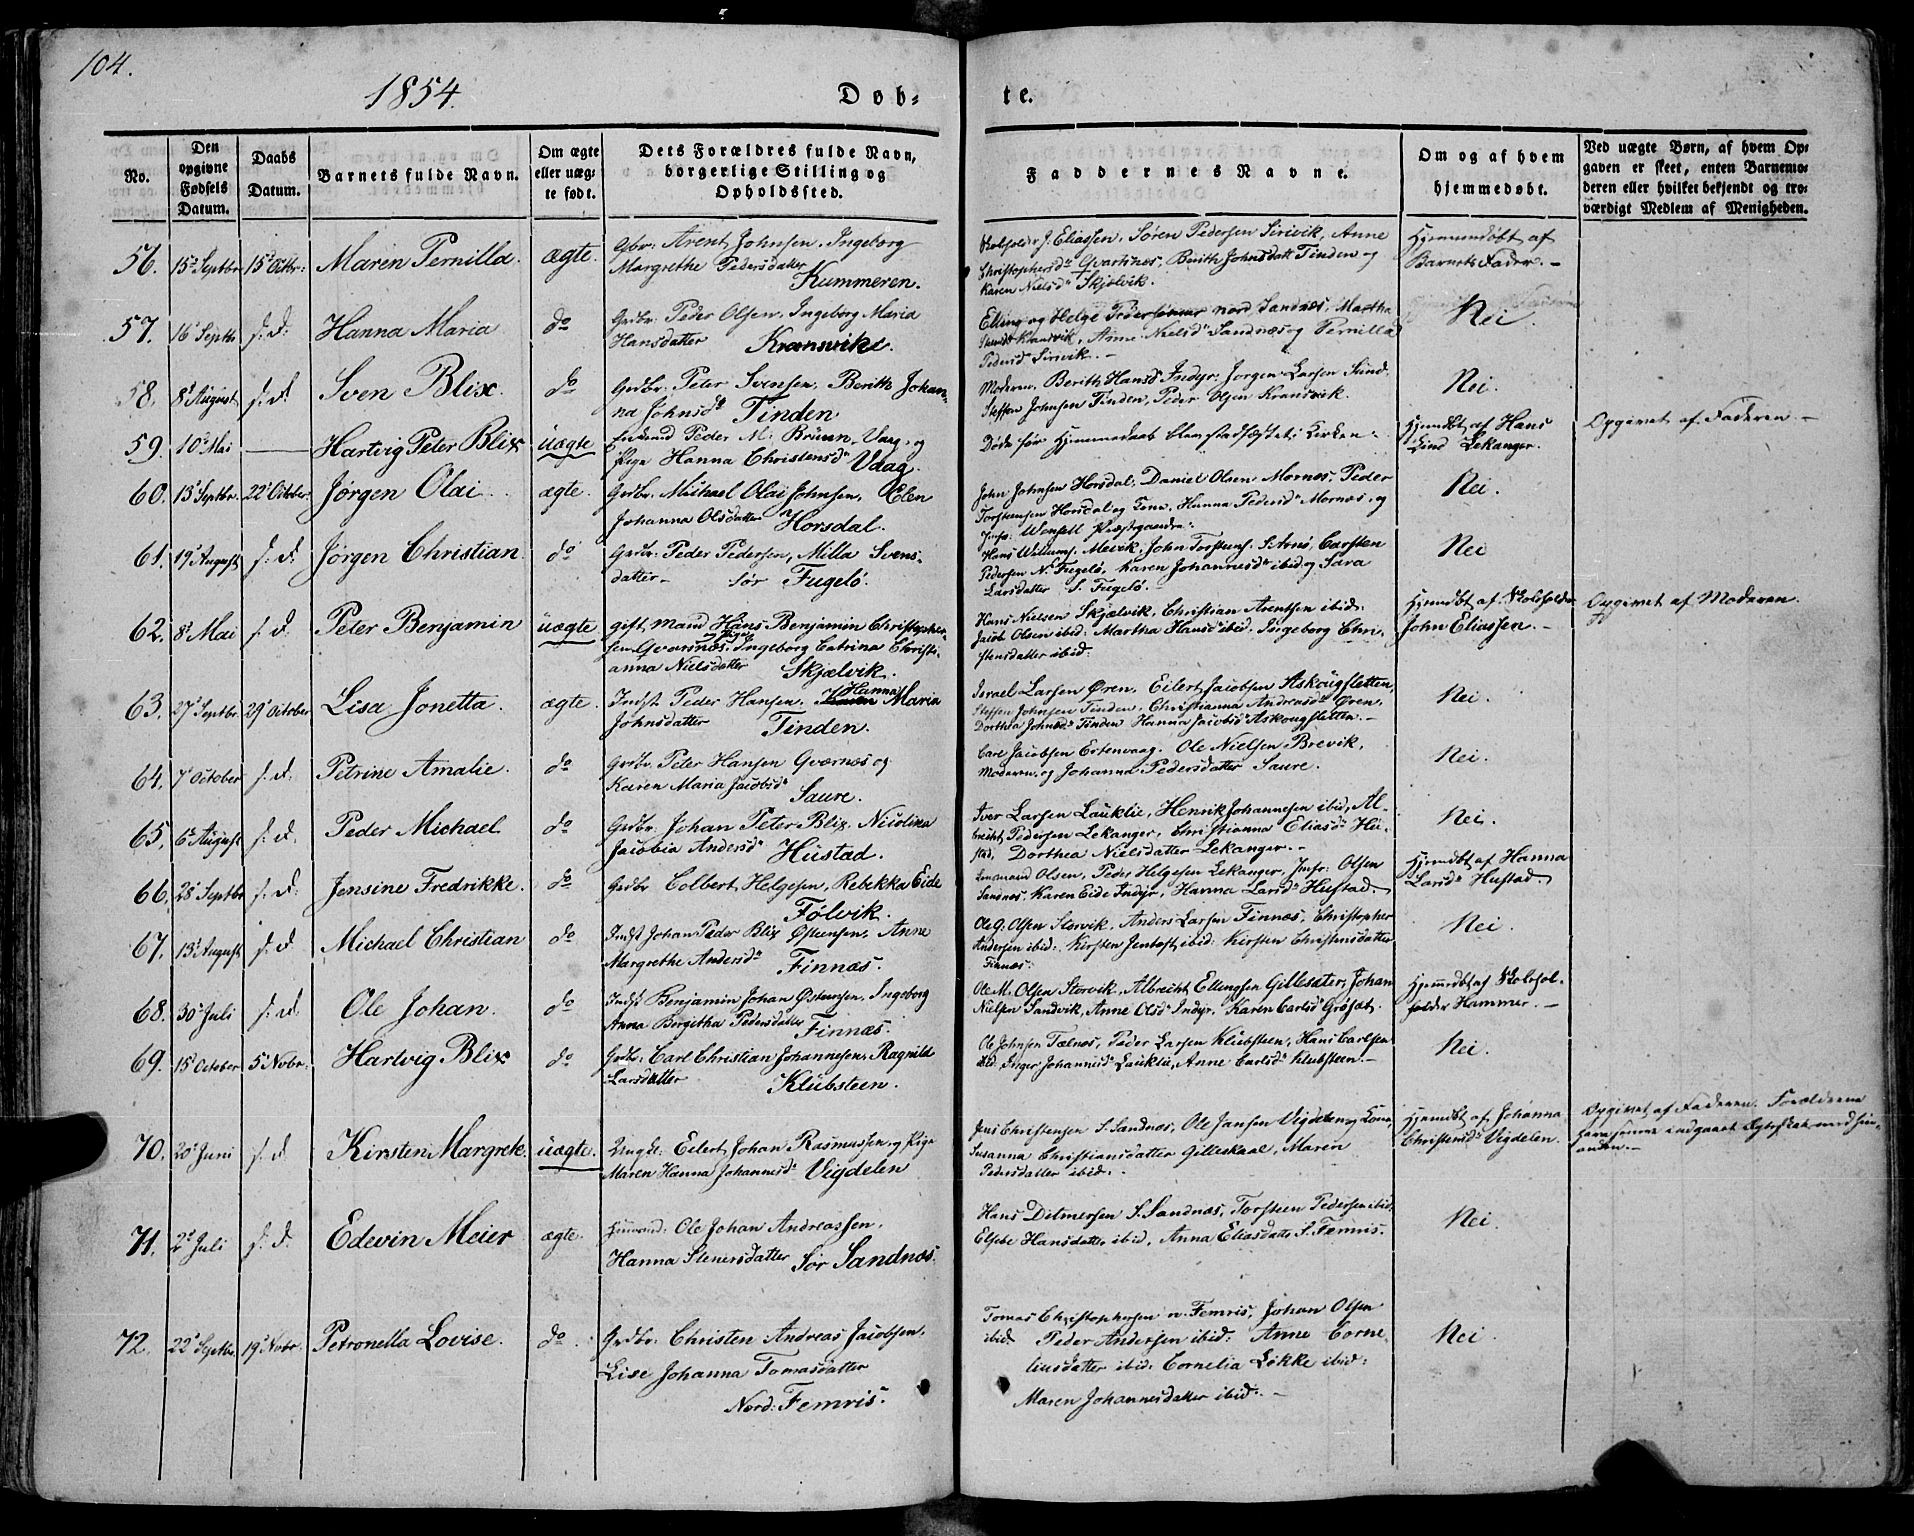 104.
1854.
Døb-
te.
No.
Den opgivne Fødsels Datum.
Daabs Datum.
Barnets fulde Navn.
Om ægte eller uægte født.
Dets Forældres fulde Navn, borgerlige Stilling og Opholdssted.
Faddernes Navne.
Om og af hvem hjemmedøbt.
Ved uægte Børn, af hvem Opgaven er skeet, enten Barnemoderen eller hvilket bekjendt og troværdigt Medlem af Menigheden.
56. 15d Septbr 15d Octbr: Maren Pernilla. ægte. Gbr: Arent Johnsen, Ingeborg
Margrethe Pedersdatter
Kummeren.
J. Eliassen, Søren Pedersen Sirivik, Anne
Christophersdr Qvarsnes, Berith Johnsdatt Tinden og
Karen Nielsdr Skjelvik.
Hjemmedøbt af
Barnets Fader. –
57. 16d Septbr s: d: Hanna Maria do Grdbr: Peder Olsen, Ingeborg Maria
Hansdatter Kransvik.
Elling og Helge Pedersønner nord Sandnæs, Martha
Anne Nielsdr Sandnæs og Pernilla
Pedersd Sirivik. –
Nei.
58. 8d August s: d: Sven Blix. do Grdbr: Peter Svensen, Berith Johan-
na Johnsdr Tinden
Moderen, Berith Hansdr Indyr, Jørgen Larsen Sund,
Steffen Johnsen Tinden, Peder Olsen Kransvik.
Nei.
59. 10d Mai — Hartvig Peter Blix uægte Peder M. Brüun, Vaag, og
Pige Hanna Christensdr Vaag.
Døde før Hjemmedaab blev stadfæstet i Kirken.
Hjemdbt af Hans
Lind Lekanger.
Opgivet af Faderen. –
60. 13d Septbr. 22d October. Jørgen Olai. ægte. Grdbr. Michael Olai Johnsen, Elen
Johanna Olsdatter Horsdal.
John Johnsen Horsdal, Daniel Olsen Mornæs, Peder
Torstensen Horsdal og Kone, Hanna Pedersdr Mornæs, og
Jnfr: Wensell Præstegaarden.
Nei.
61. 19d August s: d: Jørgen Christian. do Grdbr: Peder Pedersen, Milla Svens-
datter – Sør Fugelø.
Hans Willums. Mevik, John Torstens. S. Arnø, Carsten
Pedersen N. Fugelø, Karen Johannesdr ibid og Sara
Larsdatter S. Fugelø.
Nei
62. 8d Mai s: d. Peter Benjamin uægte gift Mand Hans Benjamin Christopher-
sen Qvarsnæs, Pige Ingeborg Catrina Christi-
anna Nielsdatter Skjælvik.
Hans Nielsen Skjælvik, Christian Arentsen ibid:
Jacob Olsen ibid: Martha Hansdr ibid, Ingeborg Chri-
stensdatter ibid:
Hjemdbt af Skoleholder
John Eliassen. –
Opgivet af Moderen.
63. 27d Septbr. 29d October Lisa Jonetta. ægte. Indst Peder Hansen, Hanna Maria
Johnsdatter Tinden.
Israel Larsen Øren, Eilert Jacobsen Askougsletten,
Steffen Johnsen Tinden, Christianna Andreasdr Øren,
Dorthea Johnsdr Tinden Hanna Jacobsdr Askougsletten. –
Nei.
64. 7d October s: d. Petrine Amalie. do. Grdbr. Peter Hansen Qværnæs og
Karen Maria Jacobsdr
Saure.
Carl Jacobsen Ertenvaag, Ole Nielsen Brevik,
Moderen, og Johanna Pedersdatter Saure.
Nei.
65. 6d August s: d. Peder Michael do Grdbr: Johan Peter Blix, Nicolina
Jacobia Andersdr Hustad.
Iver Larsen Lauklie, Henrik Johannesen ibid, Al-
brecht Pedersen Lekanger, Christianna Eliasdr Hei-
stad, Dorthea Nielsdatter Lekanger. –
Nei.
66. 28d Septbr s: d. Jensine Fredrikke. do Grdbr Colbert Helgesen, Rebekka Eide
Følvik.
Olsen, Peder Helgesen Lekanger, Jnfr: Olsen
Sandnæs, Karen Eide Indyr, Hanna Larsdr Hustad
Hjemdbt af Hanna
Larsdr Hustad.
67. 13d August s: d Michael Christian do Indst Johan Peder Blix Østensen, Anne
Margrethe Andersdr Finnæs.
Ole G. Olsen Storvik, Anders Larsen Finnæs, Christopher
Andersen ibid: Kirsten Jentoft ibid: Kirsten Christensdatter
Finnæs:
Nei.
68. 30d Juli s: d. Ole Johan. do Indst Benjamin Johan Østensen, Ingeborg
Anna Birgitha Pedersdatter Finnæs.
Ole M. Olsen Storvik, Albrecht Ellingsen Gillesæter, Johan
Nielsen Sandvik, Anne Olsdr Indyr, Karen Carlsdr Grøsæt.
Hjemdbt af Skolehol-
holder Hammer. –
69. 15d October 5d Novbr. Hartvig Blix do Grdbr: Carl Christian Johannesen, Ragnild
Larsdatter Klubsteen.
Ole Johnsen Tælnæs, Peder Larsen Klubsteen, Hans Carlsen
ibid: Inger Johannesdr Lauklie, Anne Carlsdr Klubsteen. –
Nei.
70. 20d Juni s. d Kirsten Margrete. uægte. Ungk: Eilert Johan Rasmussen, og Pige
Maren Hanna Johannesdr Vigdelen
Jens Christensen S. Sandnæs, Ole Jansen Vigdelen og Kone,
Susanna Christiansdatter Gilleskaal, Maren
Pedersdatter ibid. –
Hjemdbt af Johanna
Christensdr Vigdelen.
Opgivet af Faderen. Forældrene
have senere indgaaet Ægteskab med hin-
anden. –
71. 2d Juli s. d. Edevin Meier ægte. Huusmd: Ole Johan Andreassen,
Hanna Stenersdatter Sør Sandnæs.
Hans Ditmersen S. Sandnæs, Torsteen Pedersen ibid,
Elsebe Hansdatter ibid, Anna Eliasdatr S. Femris.
Nei.
72. 22d Septbr. 19d Novbr. Petronella Lovise. do. Grdbr: Christen Andreas Jacobsen,
Lise Johanna Tomasdatter
Nord: Femris.
Tomas Christophersen n. Femris, Johan Olsen
ibid Peder Andersen ibid: Anne Corne-
liusdatter ibid: Cornelia Løkke ibid:
Maren Johannesdatter ibid. –
Nei.